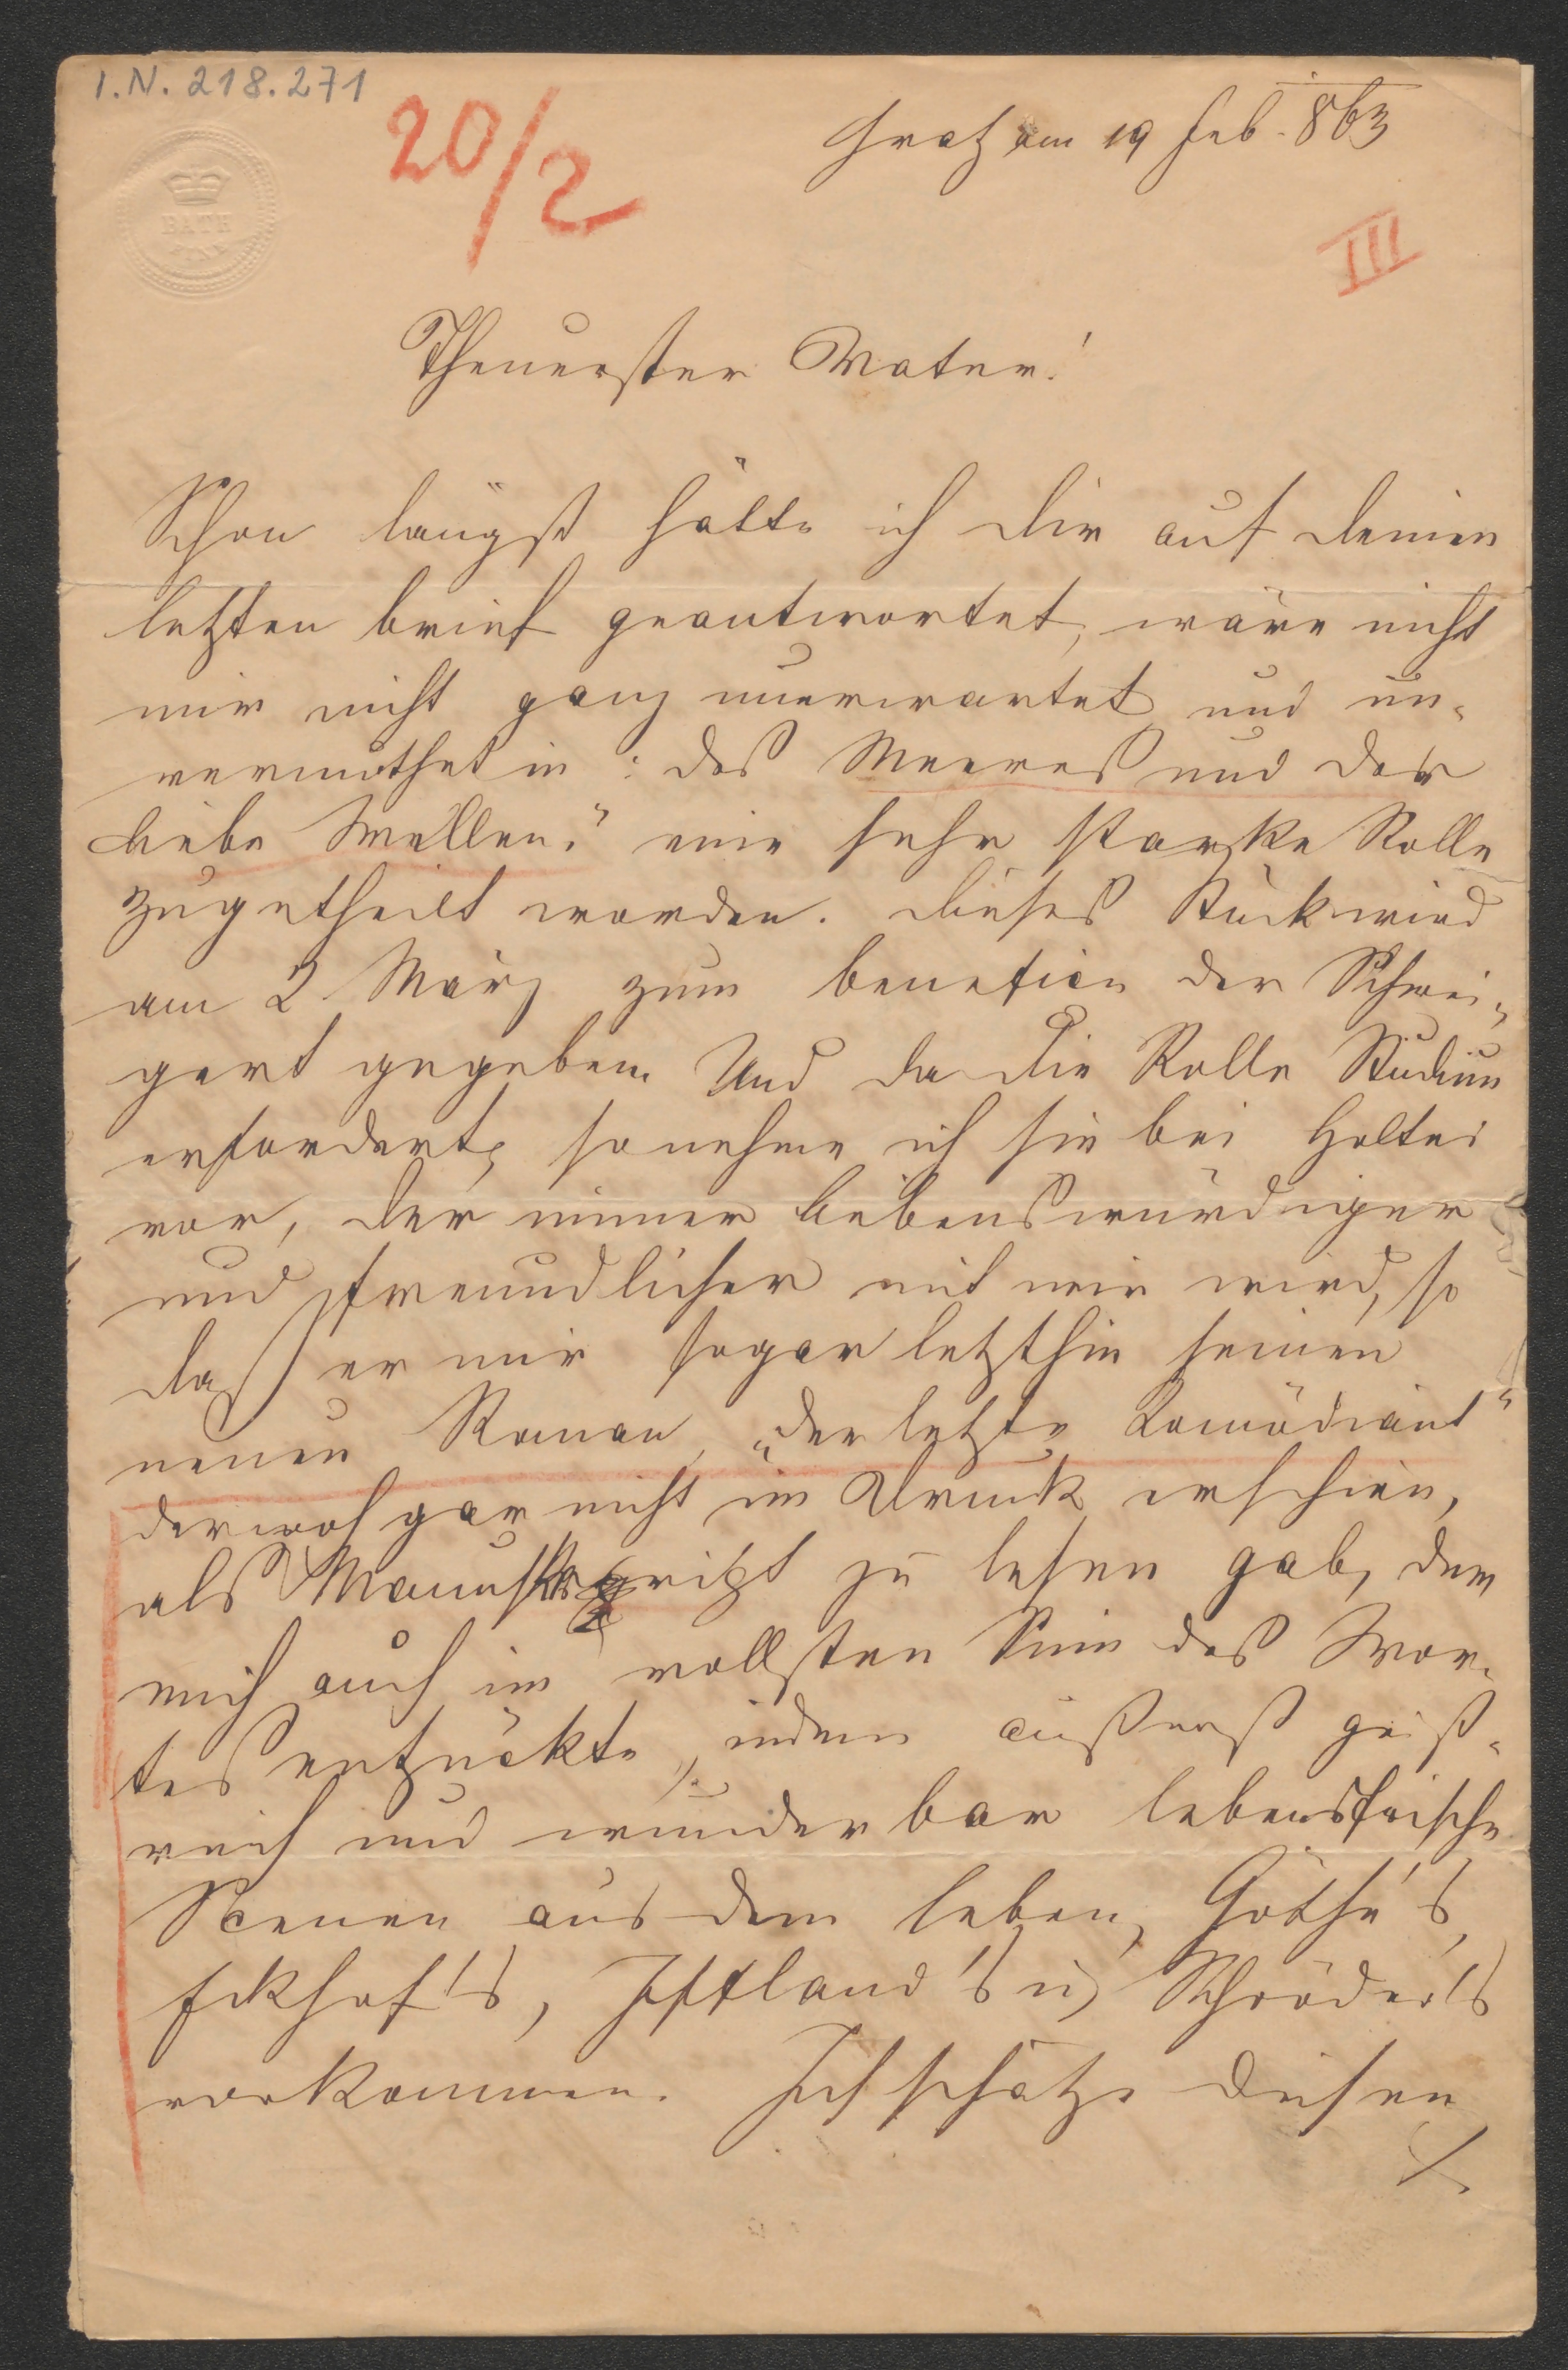 I.N. 218.271
20/2
Gratz am 19 Feb. 863
III
BATH
Theuerster Vater!
Schon längst hätte ich dir auf deinen
letzten brief geantwortet, wäre nicht
mir nicht ganz unerwartet und un-
vermuthet in: des Meeres und der
Liebe Wellen." eine sehr starke Rolle
zugetheilt worden. dieses Stück wird
am 2 März zum benefice der Schwei-
gert gegeben. Und da die Rolle Studium
erfordert, so nehme ich sie bei Holtei
vor, der immer liebenswürdiger
und freundlicher mit mir wird, so
daß er mir sogar letzthin seinen
neuen Roman, „der letzte Komödiant"
der noch gar nicht im Druck erschien,
als Manuskript zu lesen gab, der
mich auch im vollsten Sinn des Wor-
tes entzückte, indem äußerst geist-
reich und wunderbar lebensfrische
Scenen aus dem leben, Göthe's,
Eckhof's, Iffland's u, Schröder's
vorkommen. Ich schätze diesen